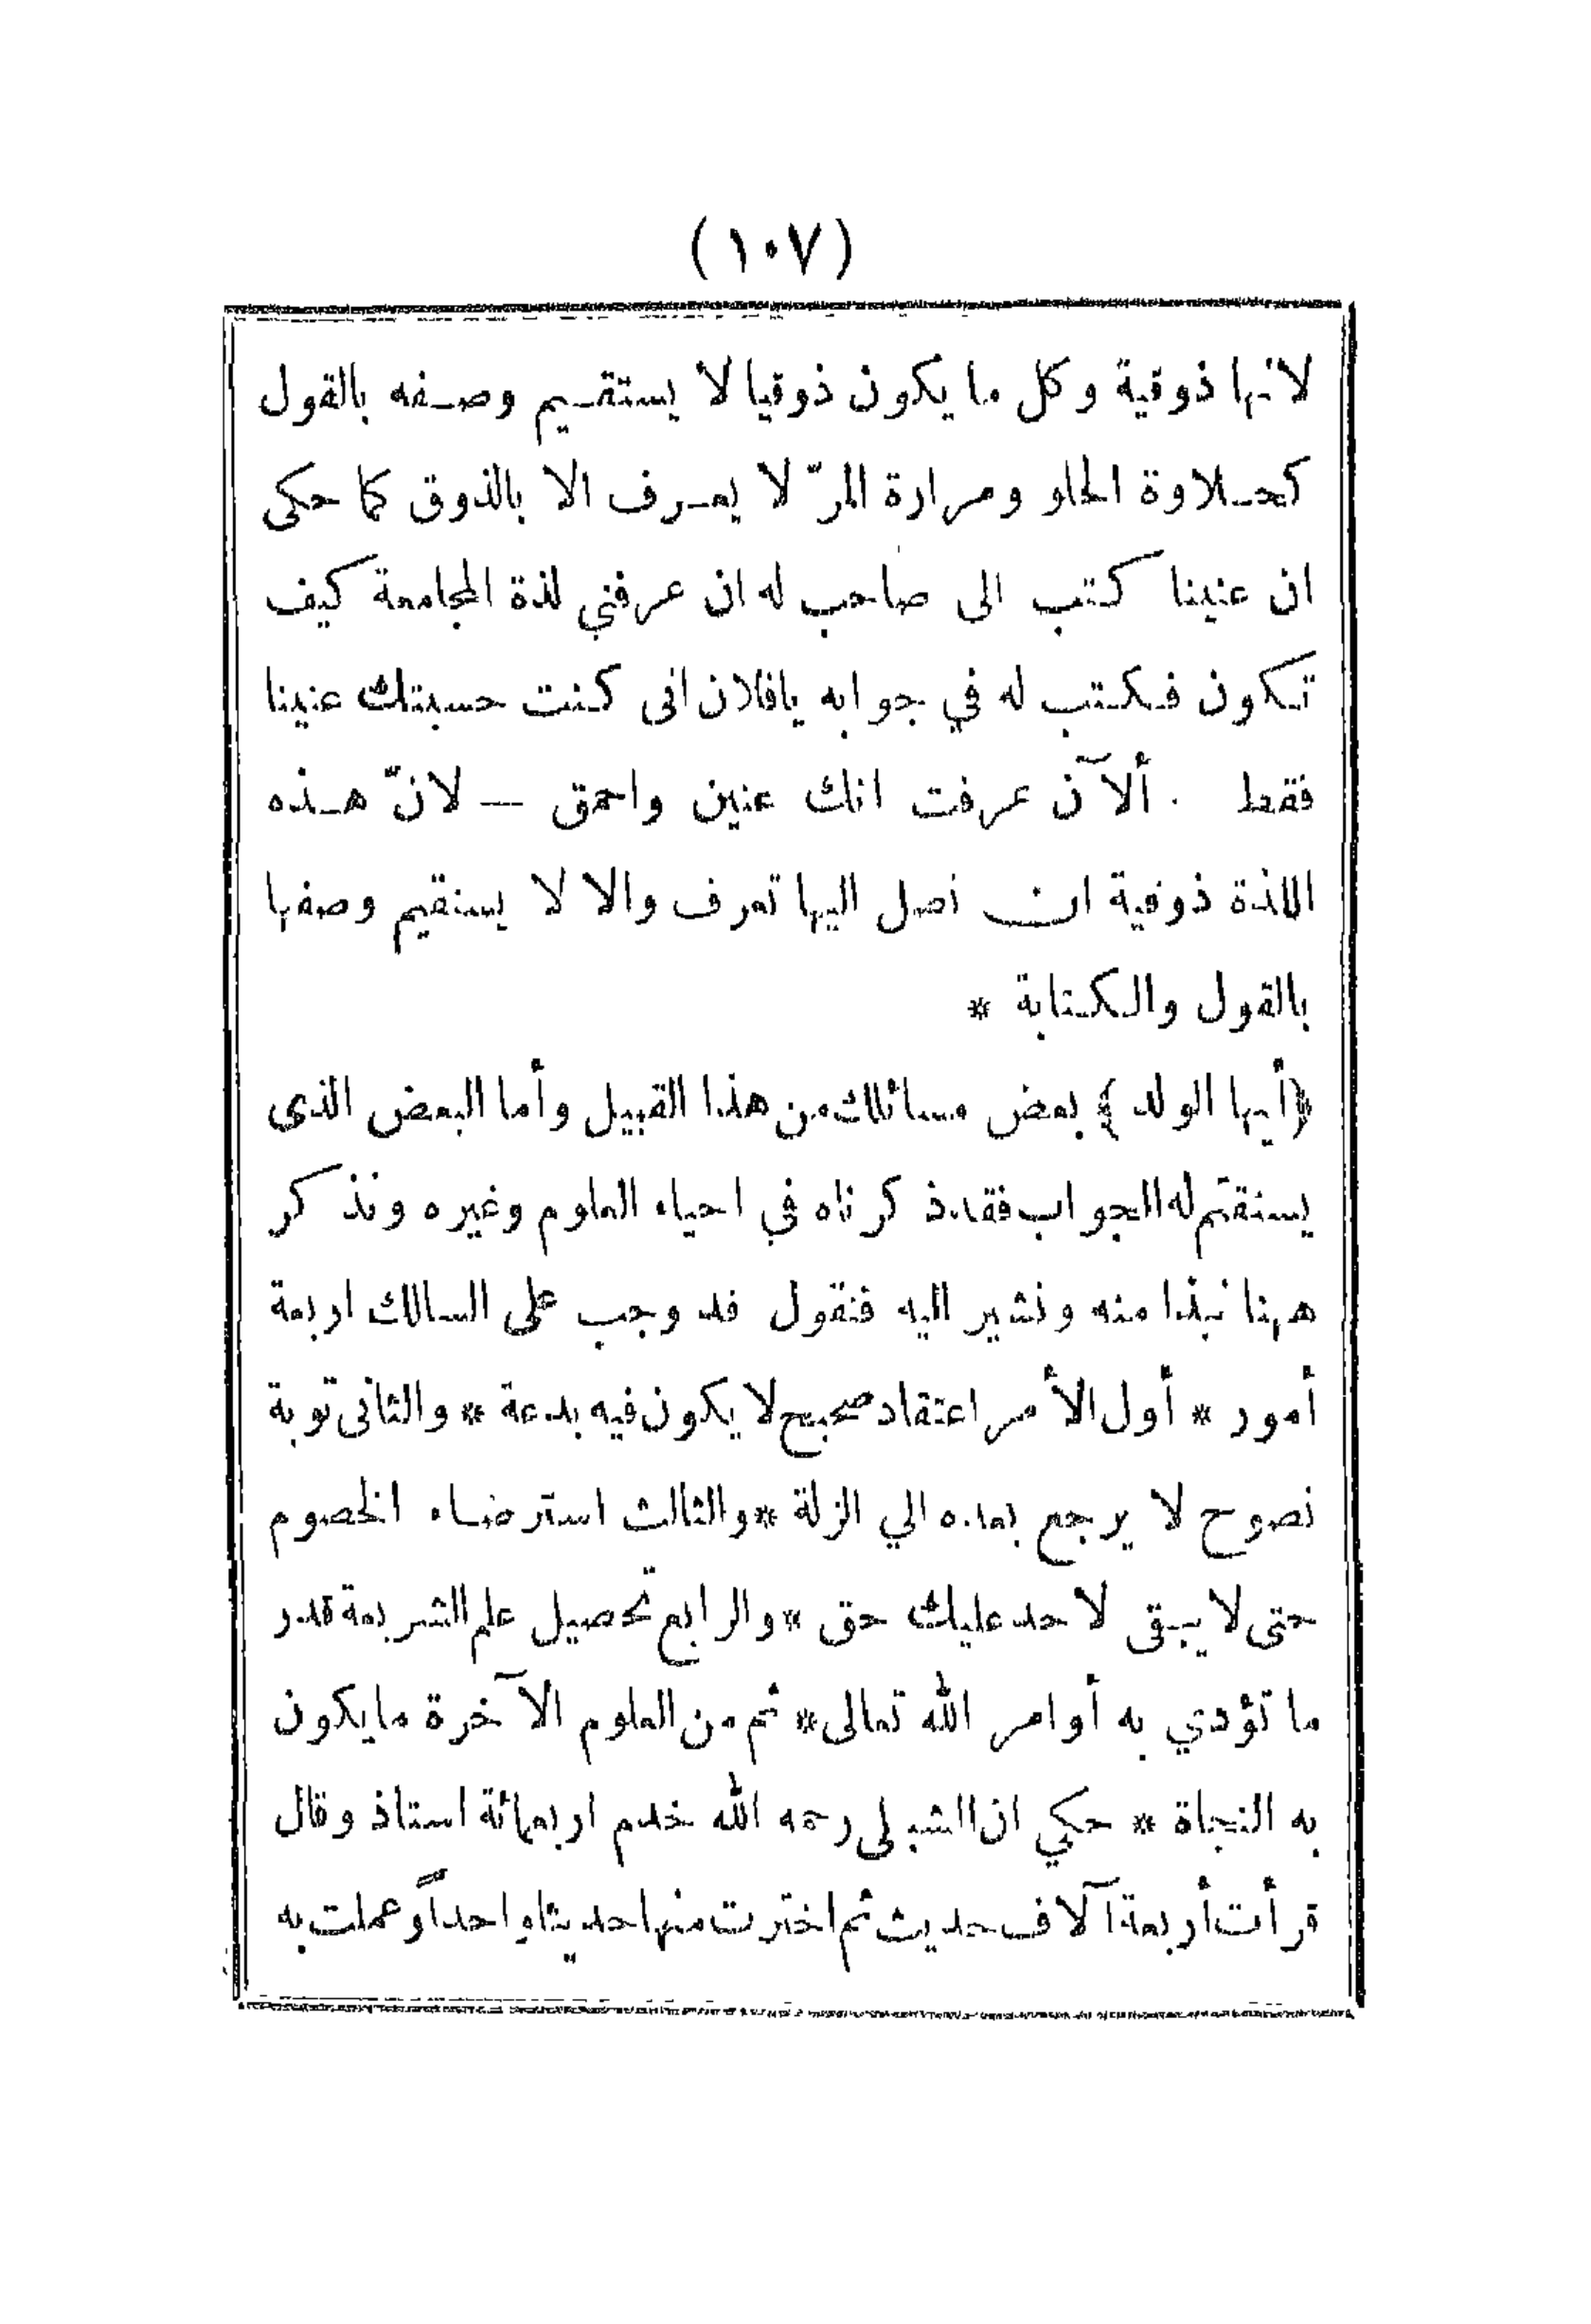 (١٠٧)
لانها ذوقية وكل ما يكون ذوقيا لا يستقيم وصفه بالقول
كحلاوة الحلو ومرارة المرّ لا يعرف الا بالذوق كما حكى
ان عنينا كتب الى صاحب له ان عرفني لذة المجامعة كيف
تكون فكتب له في جوابه يافلان انى كنت حسبتك عنينا
فقط . ألآن عرفت انك عنين واحمق — لانّ هذه
اللذة ذوقية ان نصل اليها تعرف والا لا يستقيم وصفها
بالقول والكتابة *
﴿أيها الولد﴾ بعض مسائلك من هذا القبيل وأما البعض الذى
يستقيم له الجواب فقد ذكرناه في احياء العلوم وغيره ونذكر
ههنا نبذا منه ونشير اليه فنقول قد وجب على السالك اربعة
أمور * أول الأمر اعتقاد صحيح لا يكون فيه بدعة * والثانى توبة
نصوح لا يرجع بعده الي الزلة * والثالث استرضاء الخصوم
حتى لا يبقى لاحد عليك حق * والرابع تحصيل علم الشريعة قدر
ما تؤدي به أوامر الله تعالى * ثم من العلوم الآخرة مايكون
به النجاة * حكي ان الشبلى رحمه الله خدم اربعمائة استاذ وقال
قرأت أربعة آلاف حديث ثم اخترت منها حديثا واحداً وعملت به